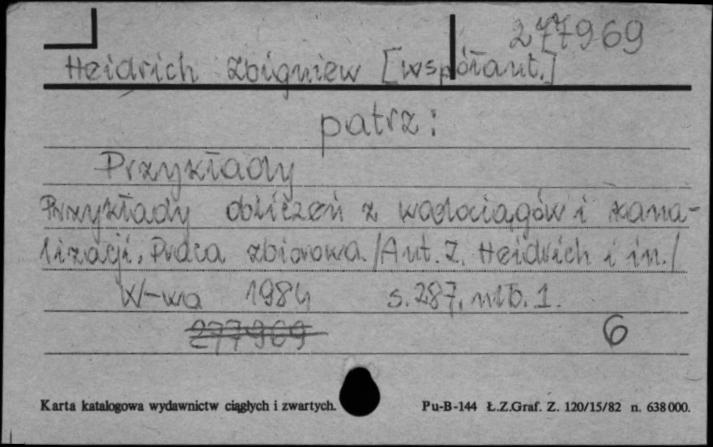 277969
Heidrich Zbigniew [współaut.]
patrz:
Przykłady
Przykłady obliczeń z wodociągów i kana-
lizacji. Praca zbiorowa. /Aut. Z. Heidrich i in./
W-wa 1984 s. 287, nlb. 1.
277969 6
Karta katalogowa wydawnictw ciągłych i zwartych. Pu-B-144 Ł.Z.Graf. Z. 120/15/82 n. 638000.